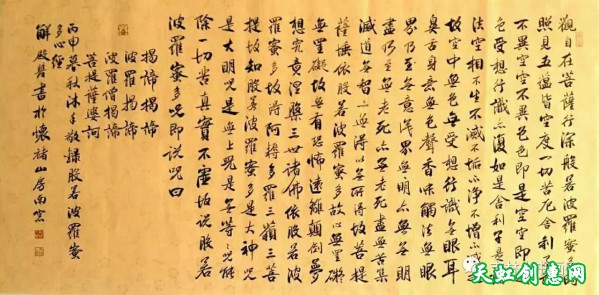 觀自在菩薩行深般若波羅蜜多時
照見五蘊皆空度一切苦厄舍利子色
不異空空不異色色即是空空即是
色受想行識亦復如是舍利子是諸
法空相不生不滅不垢不淨不增不減是
故空中無色無受想行識無眼耳
鼻舌身意無色聲香味觸法無眼
界乃至無意識界無無明亦無無明
盡乃至無老死亦無老死盡無苦集
滅道無智亦無得以無所得故菩提
薩埵依般若波羅蜜多故心無罣礙
無罣礙故無有恐怖遠離顛倒夢
想究竟涅槃三世諸佛依般若波
羅蜜多故得阿耨多羅三藐三菩
提故知般若波羅蜜多是大神咒
是大明咒是無上咒是無等〻咒能
除一切苦真實不虛故說般若
波羅蜜多咒即說咒曰
揭諦揭諦
波羅揭諦
波羅僧揭諦
菩提薩婆訶
丙申暮秋沐手敬錄般若波羅蜜
多心經
解殿君書於懷褚山房南窗
天虹创惠网